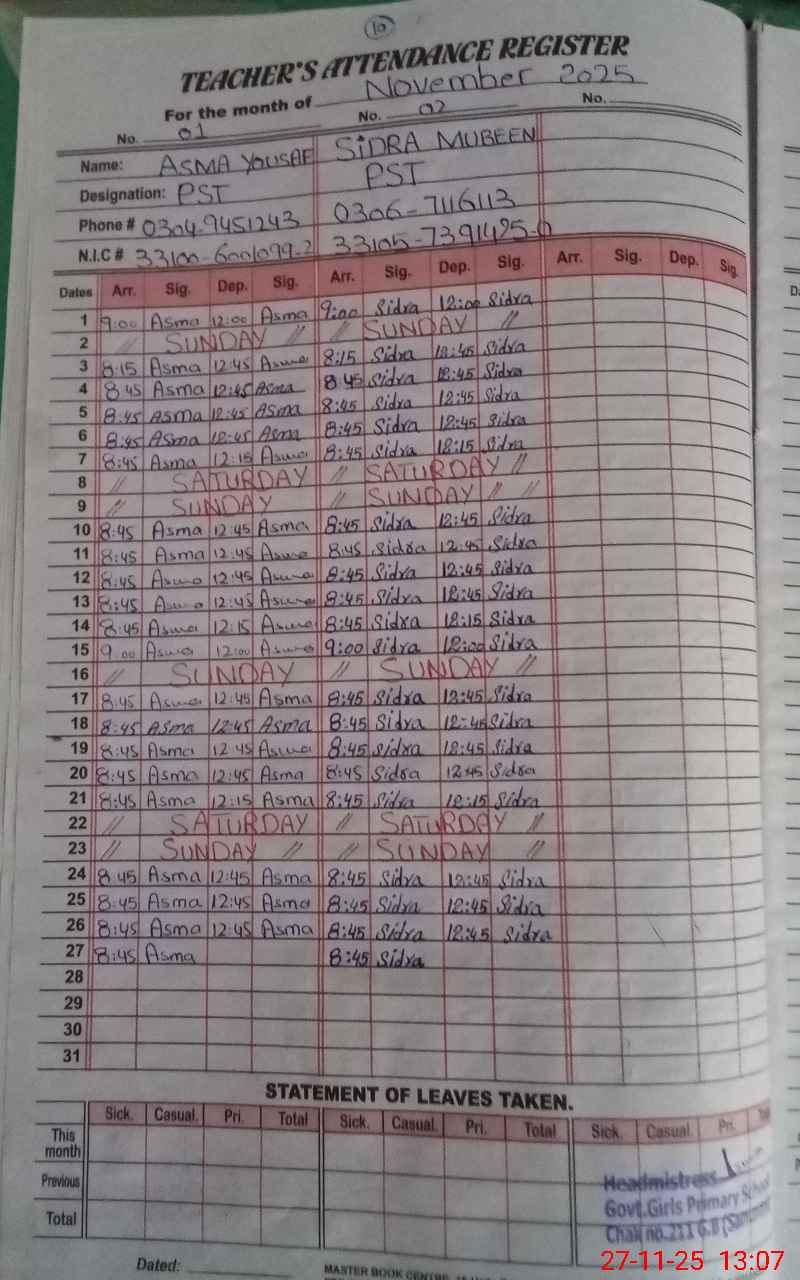 10
TEACHER'S ATTENDANCE REGISTER
For the month of November 2025
No. 01 No. 02 No.
Name: ASMA YOUSAF SIDRA MUBEEN
Designation: PST PST
Phone # 0304-9451243 0306-7116113
N.I.C # 33100-6001099-2 33105-7391425-0
Dates Arr. Sig. Dep. Sig. Arr. Sig. Dep. Sig. Arr. Sig. Dep. Sig.
1 9:00 Asma 12:00 Asma 9:00 Sidra 12:00 Sidra
2 // SUNDAY // // SUNDAY //
3 8:15 Asma 12:45 Asma 8:15 Sidra 12:45 Sidra
4 8:45 Asma 12:45 Asma 8:45 Sidra 12:45 Sidra
5 8:45 Asma 12:45 Asma 8:45 Sidra 12:45 Sidra
6 8:45 Asma 12:45 Asma 8:45 Sidra 12:45 Sidra
7 8:45 Asma 12:15 Asma 8:45 Sidra 12:15 Sidra
8 // SATURDAY // SATURDAY //
9 // SUNDAY // SUNDAY // //
10 8:45 Asma 12:45 Asma 8:45 Sidra 12:45 Sidra
11 8:45 Asma 12:45 Asma 8:45 Sidra 12:45 Sidra
12 8:45 Asma 12:45 Asma 8:45 Sidra 12:45 Sidra
13 8:45 Asma 12:45 Asma 8:45 Sidra 12:45 Sidra
14 8:45 Asma 12:15 Asma 8:45 Sidra 12:15 Sidra
15 9:00 Asma 12:00 Asma 9:00 Sidra 12:00 Sidra
16 // SUNDAY // SUNDAY //
17 8:45 Asma 12:45 Asma 8:45 Sidra 12:45 Sidra
18 8:45 Asma 12:45 Asma 8:45 Sidra 12:45 Sidra
19 8:45 Asma 12:45 Asma 8:45 Sidra 12:45 Sidra
20 8:45 Asma 12:45 Asma 8:45 Sidra 12:45 Sidra
21 8:45 Asma 12:15 Asma 8:45 Sidra 12:15 Sidra
22 // SATURDAY // SATURDAY //
23 // SUNDAY // // SUNDAY //
24 8:45 Asma 12:45 Asma 8:45 Sidra 12:45 Sidra
25 8:45 Asma 12:45 Asma 8:45 Sidra 12:45 Sidra
26 8:45 Asma 12:45 Asma 8:45 Sidra 12:45 Sidra
27 8:45 Asma 8:45 Sidra
28
29
30
31
STATEMENT OF LEAVES TAKEN.
Sick. Casual. Pri. Total Sick. Casual. Pri. Total Sick. Casual. Pri.
This month
Previous
Total
Headmistress
Govt.Girls Primary School
Chak no.211 G.B
Dated:
MASTER BOOK CENTRE
27-11-25 13:07